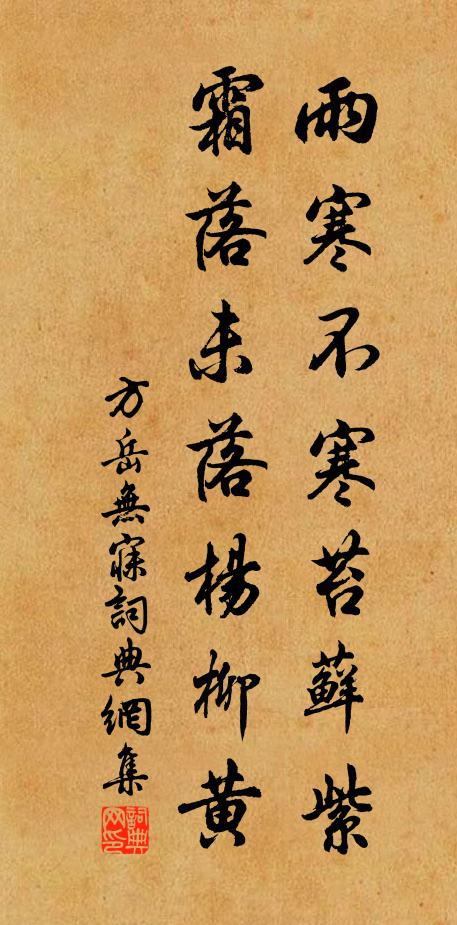 雨寒不寒苔蘚紫
霜落未落楊柳黃
方岳無寐詞典網集
詞典网印